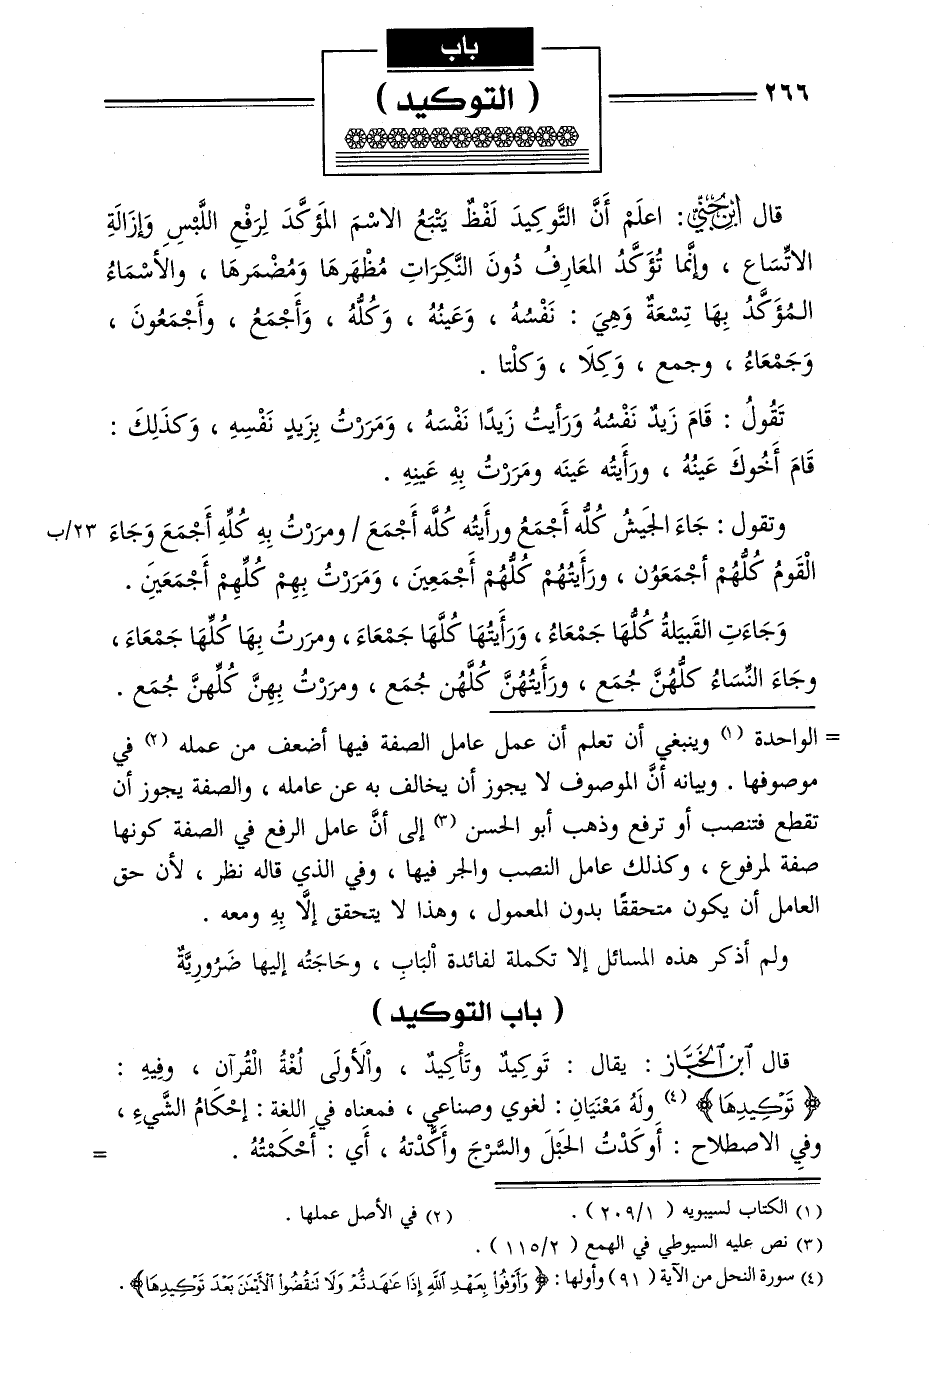 باب
( التوكيد )
٢٦٦
قال ابن جني : اعلَمْ أَنَّ التَّوكِيدَ لَفْظٌ يَتْبَعُ الاسْمَ المُؤَكَّدَ لِرَفْعِ اللَّبْسِ وَإِزَالَةِ
الاتِّسَاع ، وإنَّما تُؤَكَّدُ المَعَارِفُ دُونَ النَّكِرَاتِ مُظْهَرِهَا وَمُضْمَرِهَا ، والأسْمَاءُ
المُؤَكَّدُ بِهَا تِسْعَةٌ وَهِيَ : نَفْسُهُ ، وَعَينُهُ ، وَكُلُّهُ ، وَأَجْمَعُ ، وأَجْمَعُونَ ،
وَجَمْعَاءُ ، وجمع ، وَكِلَا ، وَكلْتا .
تَقُولُ : قَامَ زَيدٌ نَفْسُهُ وَرَأيتُ زَيدًا نَفْسَهُ ، وَمَرَرْتُ بِزَيدٍ نَفْسِهِ ، وَكذَلِكَ :
قَامَ أَخُوكَ عَينُهُ ، ورَأَيتُه عَينَه ومَرَرْتُ بِهِ عَينِهِ .
وتقول : جَاءَ الجَيشُ كُلُّه أَجْمَعُ ورأيتُه كلَّه أَجْمَعَ / ومرَرْتُ بِهِ كُلِّهِ أَجْمَعَ وَجَاءَ ٢٣/ب
القَومُ كُلُّهُم أجْمَعَوُن ، ورَأَيتُهُمْ كُلَّهُمْ أَجْمَعِينَ ، وَمَرَرْتُ بِهِمْ كُلِّهِمْ أَجْمَعَيِنَ .
وَجَاءَتِ القَبيَلةُ كُلُّهَا جَمْعَاءُ ، وَرَأَيتُهَا كُلَّهَا جَمْعَاءَ ، ومررتُ بِهَا كُلِّهَا جَمْعَاءَ ،
وجَاءَ النِّسَاءُ كلُّهُنَّ جُمَع ، ورَأَيتُهُنَّ كُلَّهُن جُمَع ، ومرَرْتُ بِهِنَّ كُلِّهنَّ جُمَع .
= الواحدة (١) وينبغي أن تعلم أن عمل عامل الصفة فيها أضعف من عمله (٢) في
موصوفها . وبيانه أنَّ الموصوف لا يجوز أن يخالف به عن عامله ، والصفة يجوز أن
تقطع فتنصب أو ترفع وذهب أبو الحسن (٣) إلى أنَّ عامل الرفع في الصفة كونها
صفة لمرفوع ، وكذلك عامل النصب والجر فيها ، وفي الذي قاله نظر ، لأن حق
العامل أن يكون متحققًا بدون المعمول ، وهذا لا يتحقق إلَّا بِهِ ومعه .
ولم أذكر هذه المسائل إلا تكملة لفائدة الْبَابِ ، وحَاجَتُه إليها ضَرُوريَّةٌ
( باب التوكيد )
قال ابن الخباز : يقال : تَوكِيدٌ وتَأْكِيدٌ ، والْأَولَى لُغَةُ الْقُرآن ، وفِيهِ :
﴿ تَوْكِيدِهَا ﴾ (٤) ولَهُ مَعْنَيَانِ : لغوي وصناعي ، فمعناه في اللغة : إحْكَامُ الشَّيءِ ،
وفي الاصطلاح : أَوكَدْتُ الحَبْلَ والسَّرْجَ وأَكَّدْتهُ ، أي : أَحْكَمْتُهُ . =
(١) الكتاب لسيبويه ( ٢٠٩/١ ) . (٢) في الأصل عملها .
(٣) نص عليه السيوطي في الهمع ( ١١٥/٢ ) .
(٤) سورة النحل من الآية ( ٩١ ) وأولها : ﴿ وَأَوْفُوا۟ بِعَهْدِ ٱللَّهِ إِذَا عَٰهَدتُّمْ وَلَا تَنقُضُوا۟ ٱلْأَيْمَٰنَ بَعْدَ تَوْكِيدِهَا ﴾ .